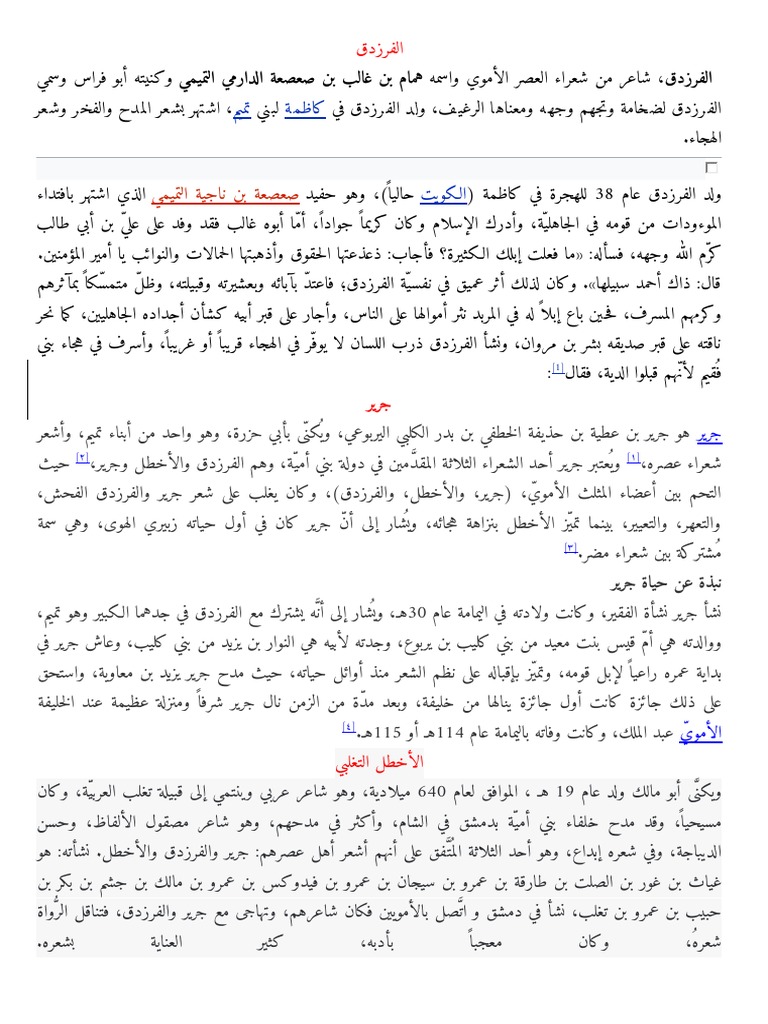 الفرزدق
الفرزدق، شاعر من شعراء العصر الأموي واسمه همام بن غالب بن صعصعة الدارمي التميمي وكنيته أبو فراس وسمي
الفرزدق لضخامة وتجهم وجهه ومعناها الرغيف، ولد الفرزدق في كاظمة لبني تميم، اشتهر بشعر المدح والفخر وشعر
الهجاء.
ولد الفرزدق عام 38 للهجرة في كاظمة (الكويت حالياً)، وهو حفيد صعصعة بن ناجية التميمي الذي اشتهر بافتداء
الموءودات من قومه في الجاهليّة، وأدرك الإسلام وكان كريماً جواداً، أمّا أبوه غالب فقد وفد على عليّ بن أبي طالب
كرّم الله وجهه، فسأله: «ما فعلت إبلك الكثيرة؟ فأجاب: ذعذعتها الحقوق وأذهبتها الحمالات والنوائب يا أمير المؤمنين.
قال: ذاك أحمد سبيلها». وكان لذلك أثر عميق في نفسيّة الفرزدق؛ فاعتدّ بآبائه وبعشيرته وقبيلته، وظلّ متمسّكاً بمآثرهم
وكرمهم المسرف، فحين باع إبلاً له في المربد نثر أموالها على الناس، وأجار على قبر أبيه كشأن أجداده الجاهليين، كما نحر
ناقته على قبر صديقه بشر بن مروان، ونشأ الفرزدق ذرب اللسان لا يوفّر في الهجاء قريباً أو غريباً، وأسرف في هجاء بني
فُقيم لأنّهم قبلوا الدية، فقال[٤]:
جرير
جرير هو جرير بن عطية بن حذيفة الخطفي بن بدر الكلبي اليربوعي، ويُكنّى بأبي حزرة، وهو واحد من أبناء تميم، وأشعر
شعراء عصره،[١] ويُعتبر جرير أحد الشعراء الثلاثة المقدَّمين في دولة بني أميّة، وهم الفرزدق والأخطل وجرير،[٢] حيث
التحم بين أعضاء المثلث الأمويّ، (جرير، والأخطل، والفرزدق)، وكان يغلب على شعر جرير والفرزدق الفحش،
والتعهر، والتعيير، بينما تميّز الأخطل بنزاهة هجائه، ويُشار إلى أنّ جرير كان في أول حياته زبيري الهوى، وهي سمة
مُشتركة بين شعراء مضر.[٣]
نبذة عن حياة جرير
نشأ جرير نشأة الفقير، وكانت ولادته في اليمامة عام 30هـ، ويُشار إلى أنَّه يشترك مع الفرزدق في جدهما الكبير وهو تميم،
ووالدته هي أمّ قيس بنت معيد من بني كليب بن يربوع، وجدته لأبيه هي النوار بن يزيد من بني كليب، وعاش جرير في
بداية عمره راعياً لإبل قومه، وتميّز بإقباله على نظم الشعر منذ أوائل حياته، حيث مدح جرير يزيد بن معاوية، واستحق
على ذلك جائزة كانت أول جائزة ينالها من خليفة، وبعد مدّة من الزمن نال جرير شرفاً ومنزلة عظيمة عند الخليفة
الأمويّ عبد الملك، وكانت وفاته باليمامة عام 114هـ أو 115هـ.[٤]
الأخطل التغلبي
ويكنَّى أبو مالك ولد عام 19 هـ ، الموافق لعام 640 ميلادية، وهو شاعر عربي وينتمي إلى قبيلة تغلب العربيّة، وكان
مسيحياً، وقد مدح خلفاء بني أميّة بدمشق في الشام، وأكثر في مدحهم، وهو شاعر مصقول الألفاظ، وحسن
الديباجة، وفي شعره إبداع، وهو أحد الثلاثة المُتَّفق على أنهم أشعر أهل عصرهم: جرير والفرزدق والأخطل. نشأته: هو
غياث بن غور بن الصلت بن طارقة بن عمرو بن سيجان بن عمرو بن فيدوكس بن عمرو بن مالك بن جشم بن بكر بن
حبيب بن عمرو بن تغلب، نشأ في دمشق و اتَّصل بالأمويين فكان شاعرهم، وتهاجى مع جرير والفرزدق، فتناقل الرُّواة
شعرهُ، وكان معجباً بأدبه، كثير العناية بشعره.